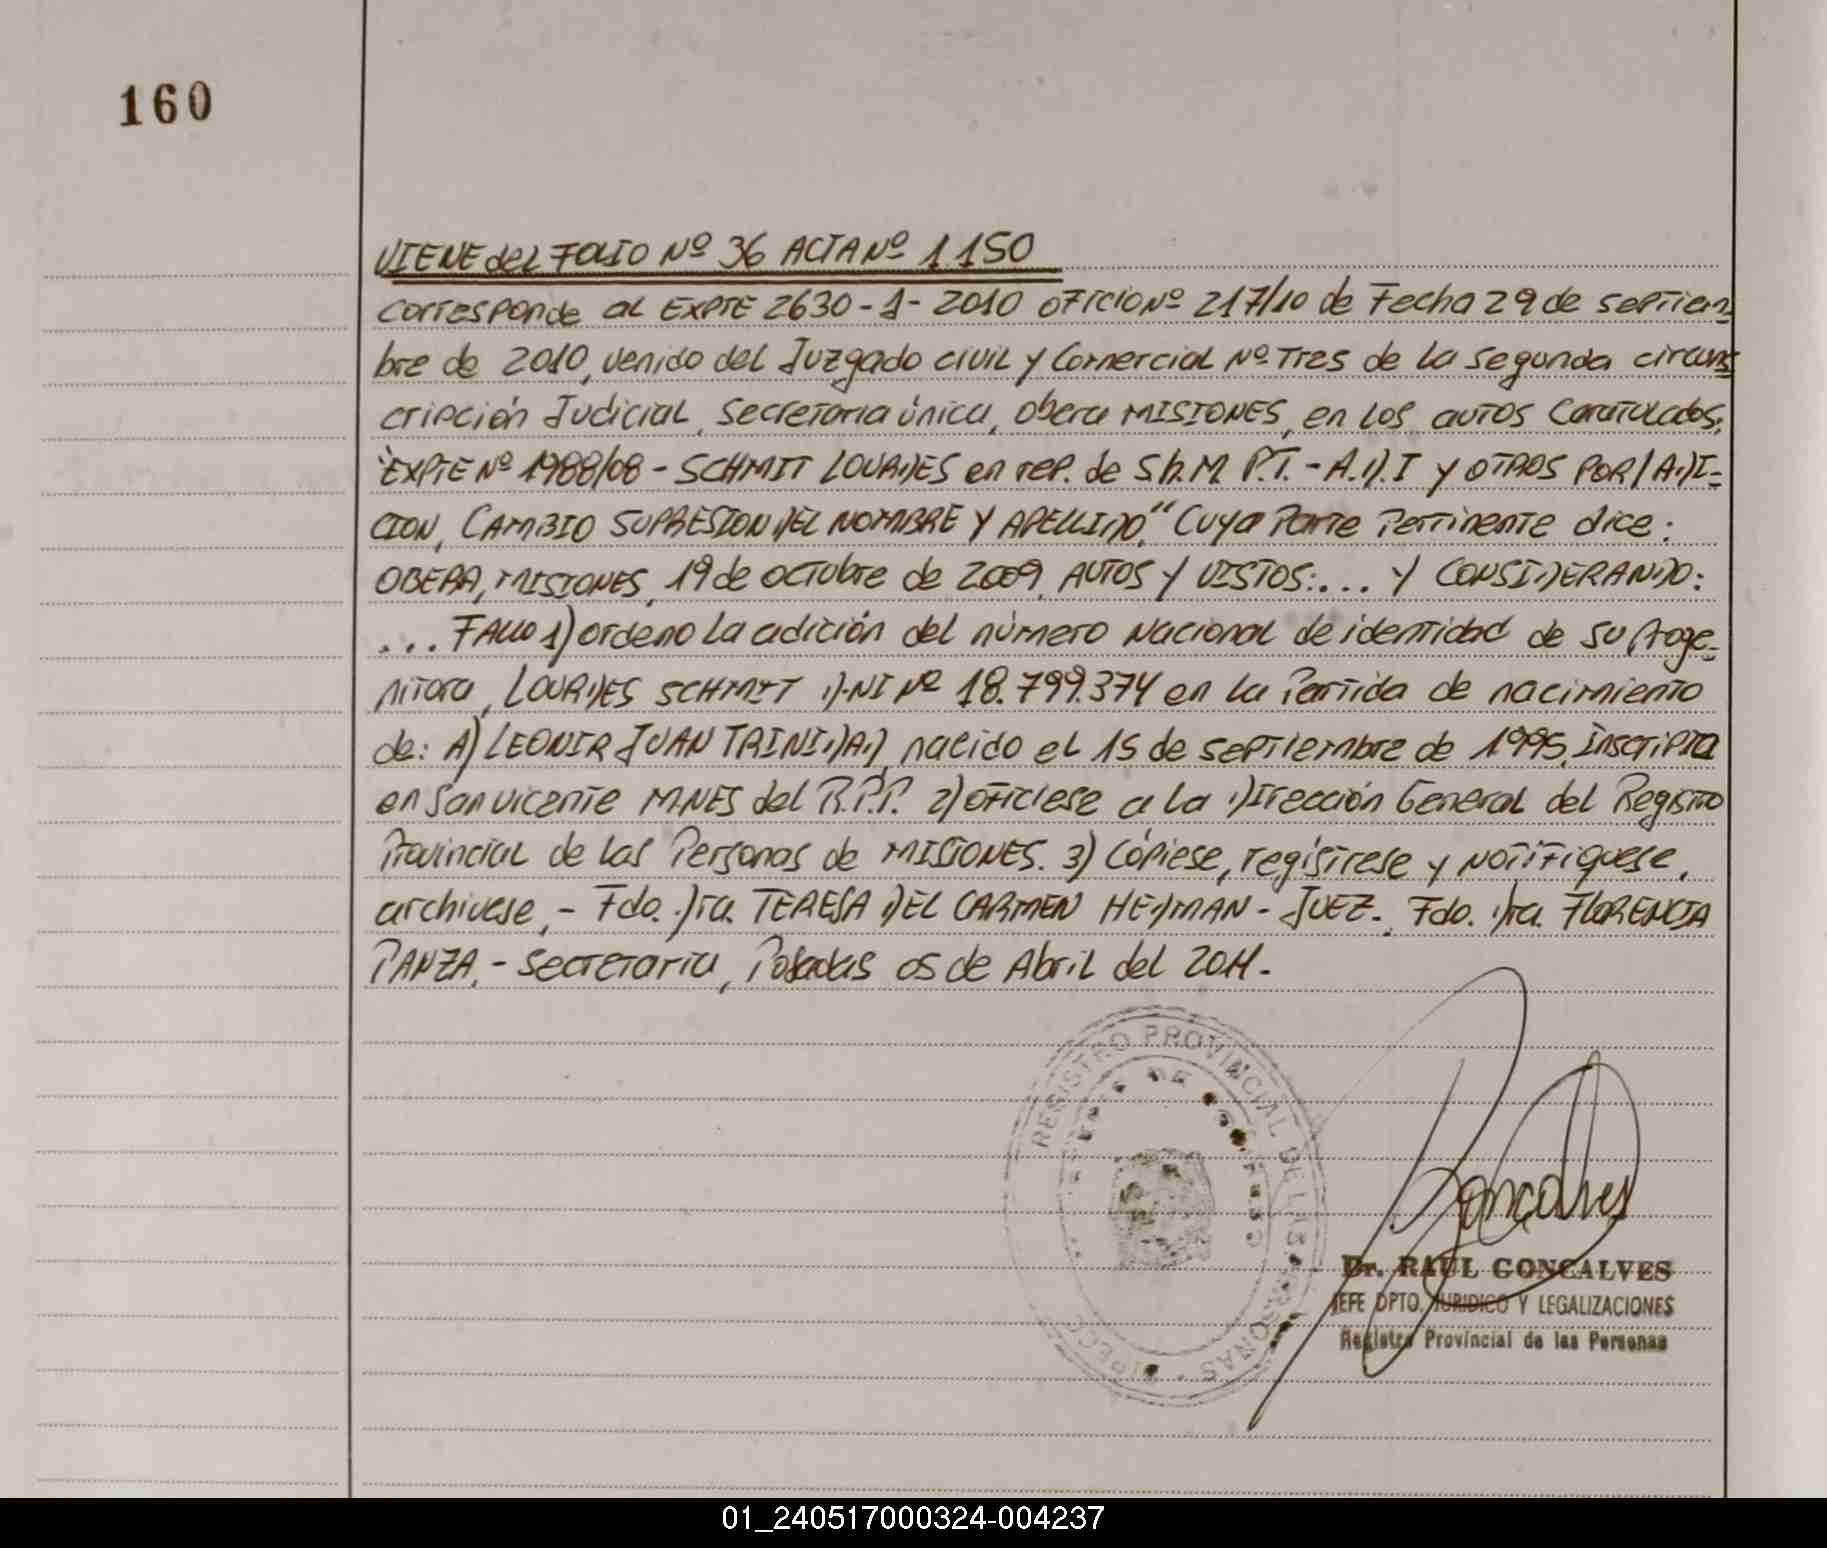 160
VIENE del FOLIO Nº 36 ACTA Nº 1150
Corresponde al EXPTE 2630-1-2010 OFICIO Nº 217/10 de Fecha 29 de septiem
bre de 2010, venido del Juzgado civil y Comercial Nº Tres de la segunda circuns
cripción Judicial, Secretaria única, Obera MISIONES, en los autos Caratulados:
"EXPTE Nº 1988/08 - SCHMIT LOURDES en rep. de Sh.M P.T. - A.D.I y OTROS POR/ADI-
CION, CAMBIO SUPRESION DEL NOMBRE Y APELLIDO." Cuya Parte Pertinente dice:
OBERA, MISIONES, 19 de octubre de 2009, AUTOS Y VISTOS:... Y CONSIDERANDO:
... FALLO 1) ordeno la adición del número Nacional de identidad de su Proge-
nitora, LOURDES SCHMIT D.NI Nº 18.799.374 en la Partida de nacimiento
de: A) LEONIR JUAN TRINIDAD, nacido el 15 de septiembre de 1995, Inscripta
en San Vicente MNES del R.P.P. 2) ofíciese a la Dirección General del Registro
Provincial de las Personas de MISIONES. 3) Cópiese, regístrese y Notifíquese,
archívese, - Fdo. Dra. TERESA DEL CARMEN HEDMAN - JUEZ. Fdo. Dra. FLORENCIA
PANZA, - secretaria, Posadas 05 de Abril del 2011.-
REGISTRO PROVINCIAL DE LAS PERSONAS
Goncalves
Dr. RAUL GONCALVES
JEFE DPTO. JURIDICO Y LEGALIZACIONES
Registro Provincial de las Personas
01_240517000324-004237